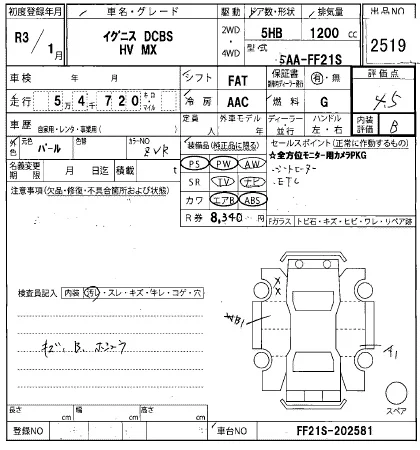 初度登録年月 車名・グレード 駆動 ドア数・形状 排気量 出品NO
R3/1月 イグニス DCBS 2WD・4WD 5HB 1200 cc 2519
HV MX 型式 5AA-FF21S
車検 年 月 シフト FAT 保証書 有・無 評価点
走行 5万4千720 キロ・マイル 冷房 AAC 燃料 G 4.5
車歴 自家用・レンタ・事業用( ) 定員 人 外車モデル 年 ディーラー・並行 ハンドル 左・右 内装評価 B
外色 元色 パール 色替 カラーNO ZVR 装備品(純正品に限る) セールスポイント(正常に作動するもの)
PS PW AW ☆全方位モニター用カメラPKG
名義変更期限 月 日迄 積載 t SR TV ナビ ・シートヒーター
注意事項(欠品・修復・不具合箇所および状態) カワ エアB ABS ・ETC
R券 8,340 円 Fガラス トビ石・キズ・ヒビ・ワレ・リペア跡
検査員記入 内装 汚れ・スレ・キズ・キレ・コゲ・穴
B1
スペア
長さ cm 幅 cm 高さ cm
登録NO 車台NO FF21S-202581